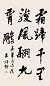 霜蹄千里
駿風翮九
霄鵬